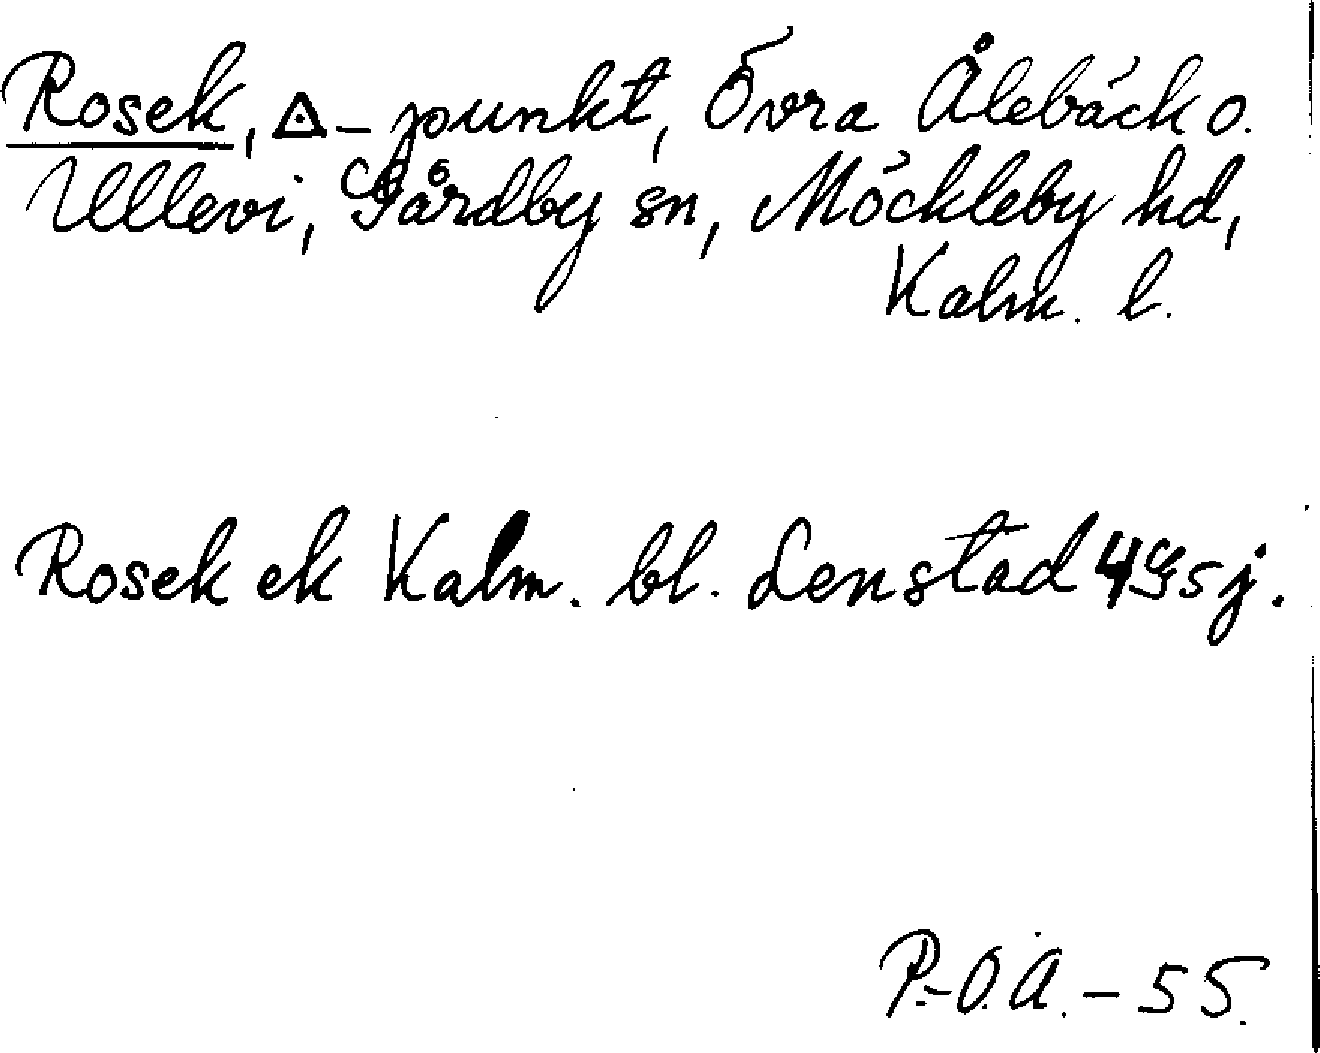 Rosek, △-punkt, Övra Ålebäck o.
Ullevi, Gårdby sn, Möckleby hd,
Kalm. l.
Rosek ek Kalm. bl. Lenstad 4G5j.
P.-O.Å.-55.